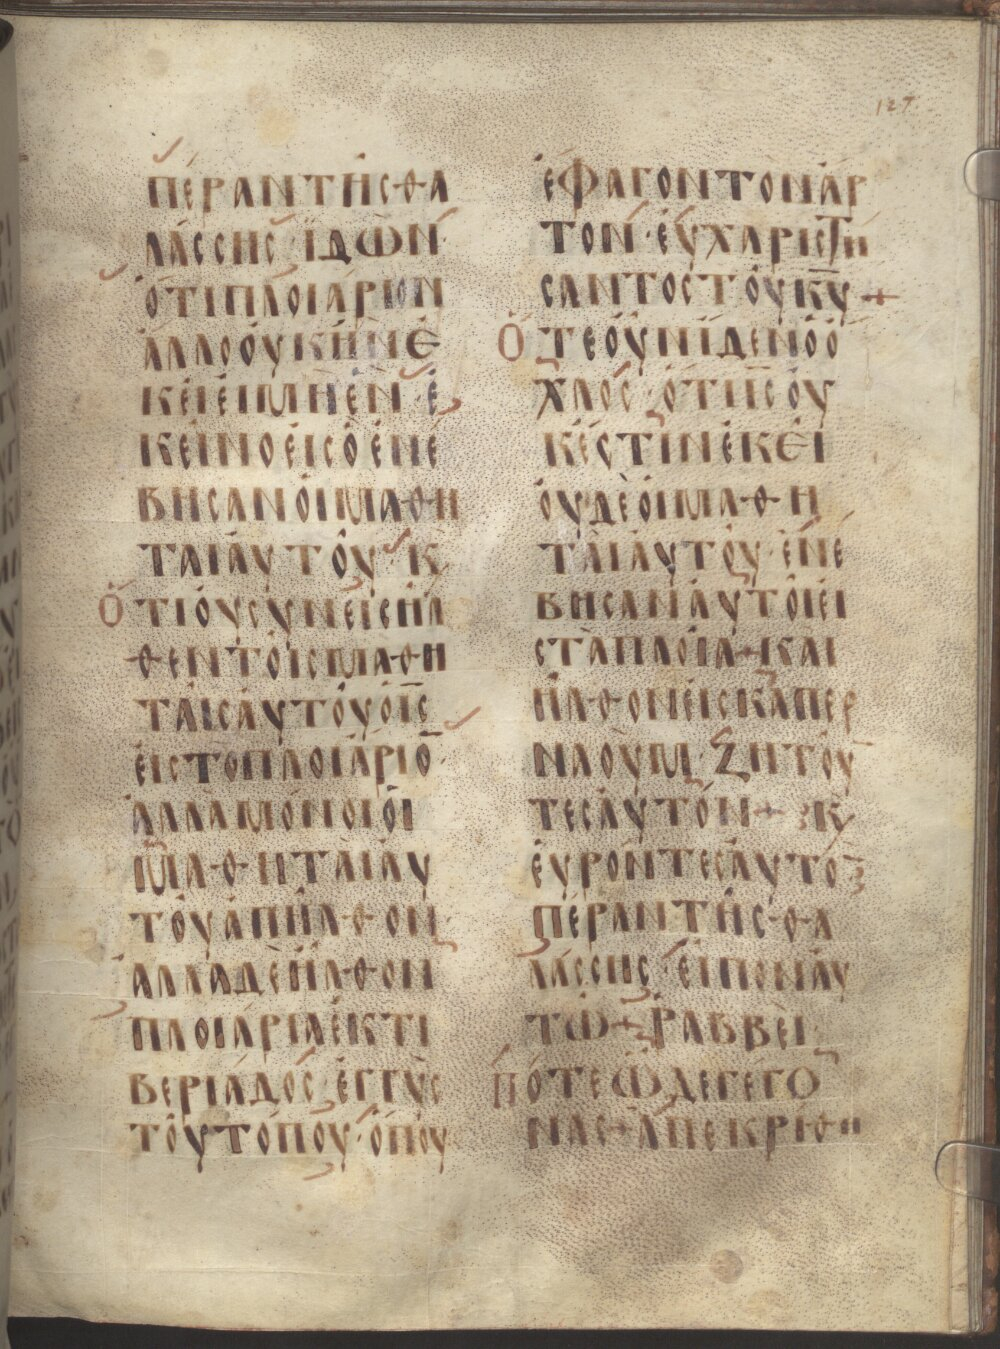 127
ΠΕΡΑΝΤΗΣΘΑ
ΛΑΣΣΗΣ·ΪΔΩΝ·
ΟΤΙΠΛΟΙΑΡΙΟΝ
ΑΛΛΟΟΥΚΗΝΕ
ΚΕΙΕΙΜΗΕΝ·Ε
ΚΕΙΝΟΕΙΣΟΕΝΕ
ΒΗΣΑΝΟΙΜΑΘΗ
ΤΑΙΑΥΤΟΥ·Κ
ΟΤΙΟΥΣΥΝΕΙΣΗΛ
ΘΕΝΤΟΙΣΜΑΘΗ
ΤΑΙΣΑΥΤΟΥΟΙ̅Σ̅
ΕΙΣΤΟΠΛΟΙΑΡΙΟ̅·
ΑΛΛΑΜΟΝΟΙΟΙ
ΜΑΘΗΤΑΙΑΥ
ΤΟΥΑΠΗΛΘΟΝ·
ΑΛΛΑΔΕΗΛΘΟΝ
ΠΛΟΙΑΡΙΑΕΚΤΙ
ΒΕΡΙΑΔΟΣ·ΕΓΓΥΣ
ΤΟΥΤΟΠΟΥ·ΟΠΟΥ
ΕΦΑΓΟΝΤΟΝΑΡ
ΤΟΝ·ΕΥΧΑΡΙΣΤΗ
ΣΑΝΤΟΣΤΟΥΚ̅Υ̅+
ΟΤΕΟΥΝΪΔΕΝΟΟ
ΧΛΟΣ·ΟΤΙΙ̅Σ̅ΟΥ
ΚΕΣΤΙΝΕΚΕΙ
ΟΥΔΕΟΙΜΑΘΗ
ΤΑΙΑΥΤΟΥ·ΕΝΕ
ΒΗΣΑΝΑΥΤΟΙΕΙ
ΣΤΑΠΛΟΙΑ+ΚΑΙ
ΗΛΘΟΝΕΙΣΚΑΠΕΡ
ΝΑΟΥΜ·ΖΗΤΟΥ
ΤΕΣΑΥΤΟΝ+Κ
ΕΥΡΟΝΤΕΣΑΥΤΟ̅
ΠΕΡΑΝΤΗΣΘΑ
ΛΑΣΣΗΣ·ΕΙΠΟΝΑΥ
ΤΩ+ΡΑΒΒΕΙ·
ΠΟΤΕΩΔΕΓΕΓΟ
ΝΑΣ+ΑΠΕΚΡΙΘΗ